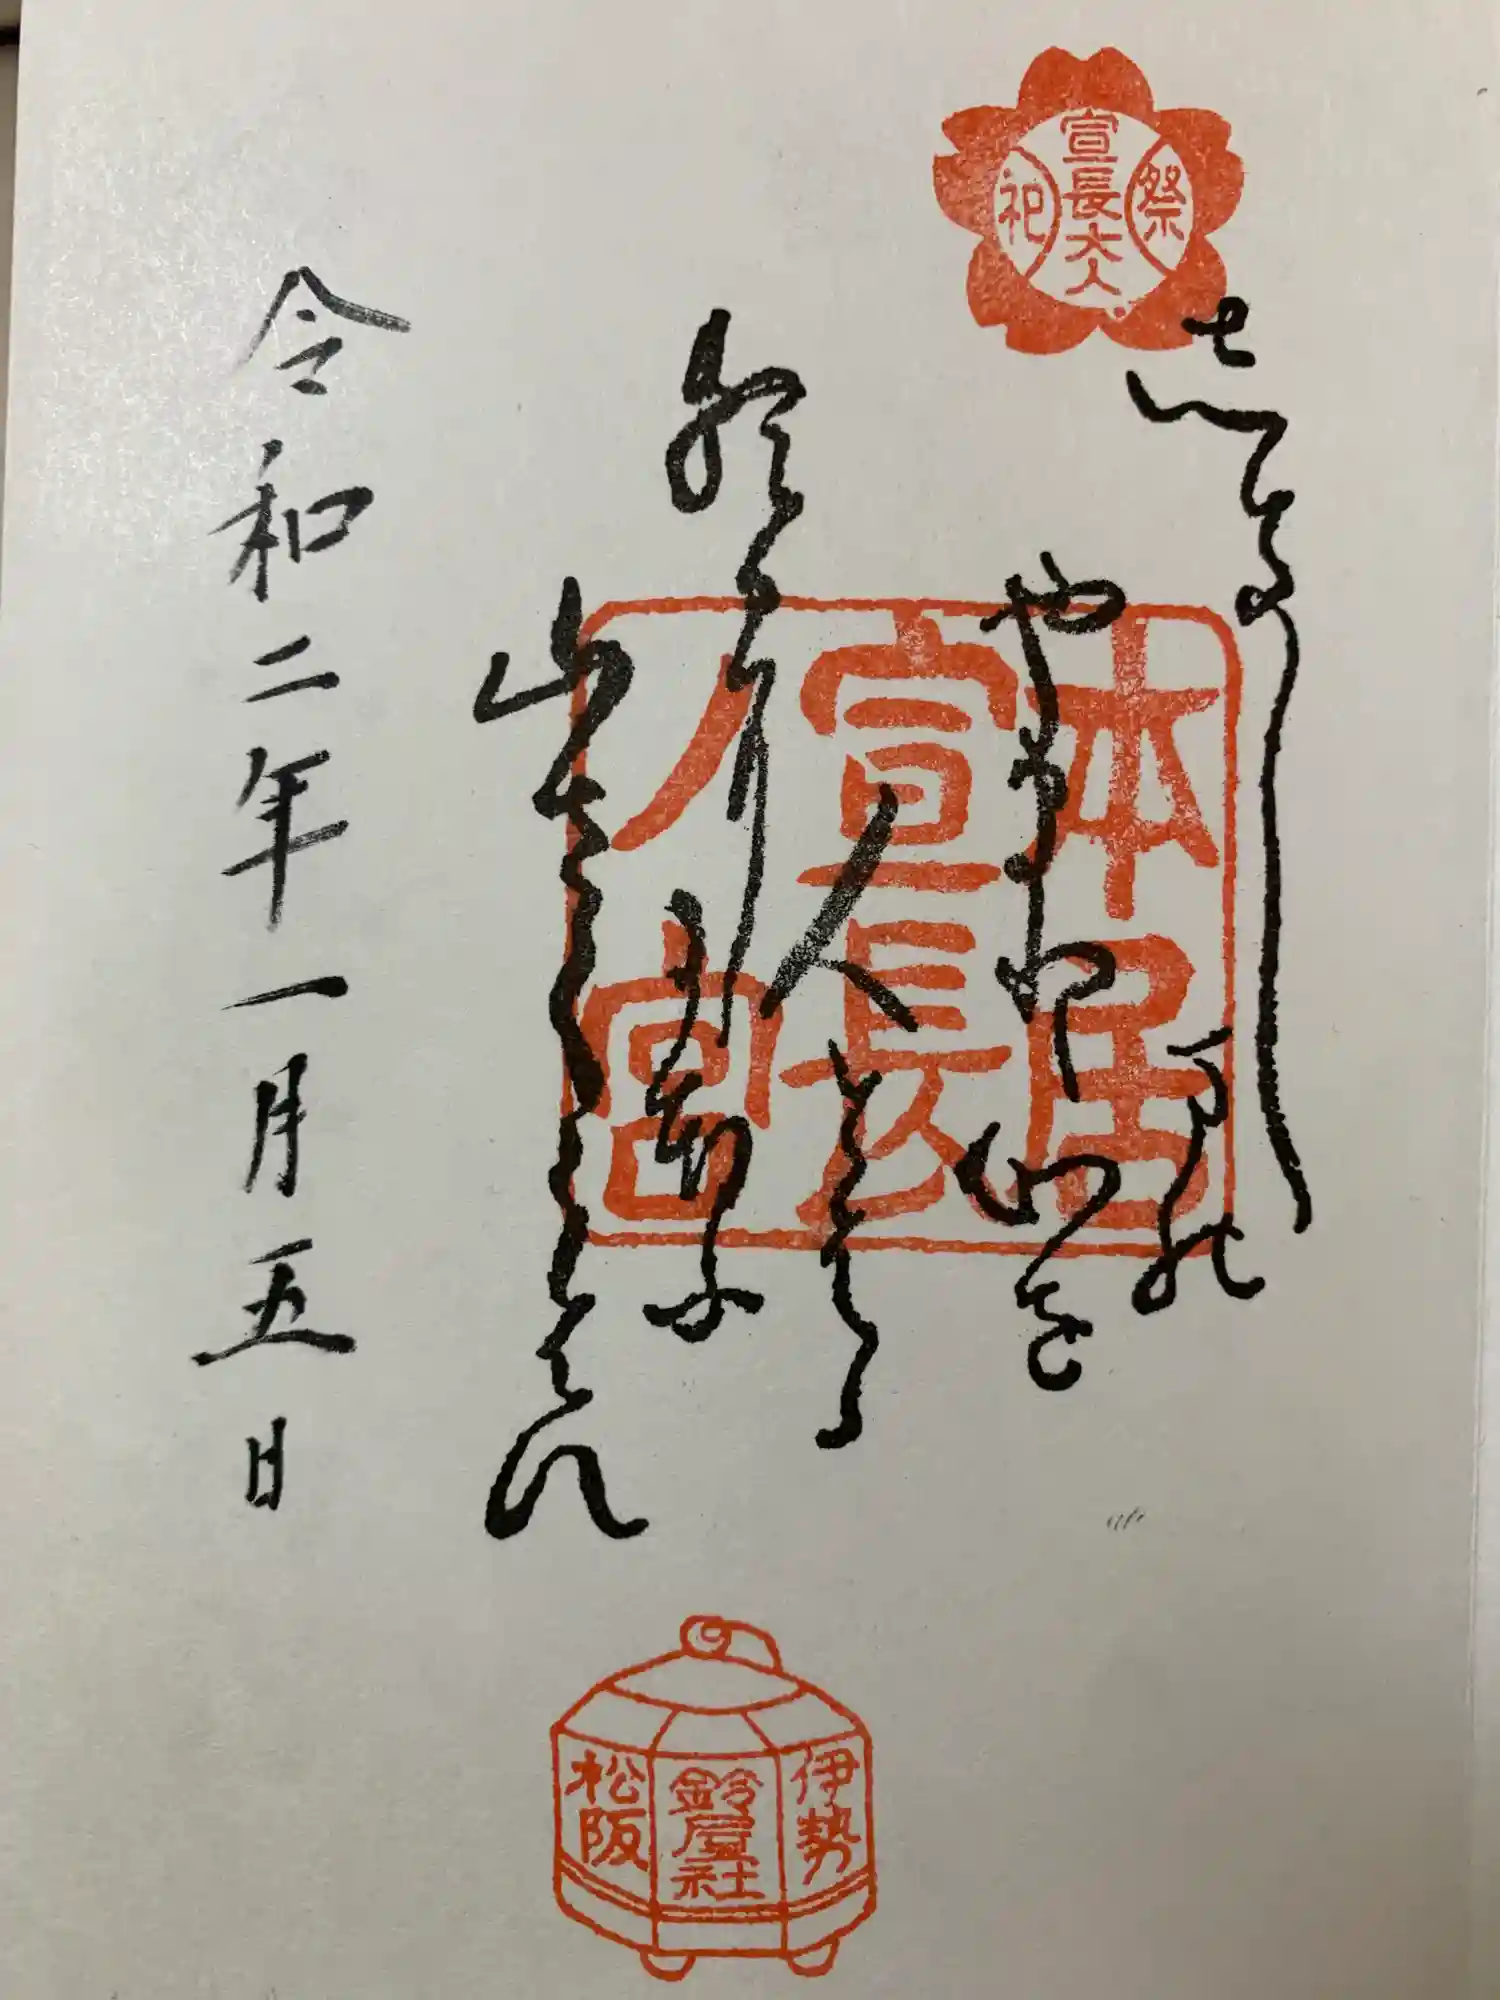 祭
宣長大人
祀
本居
宣長
ノ宮
しき嶋の
やまと心を
人とはゝ
朝日ににほふ
山さくら花
令和二年一月五日
伊勢
鈴屋社
松阪